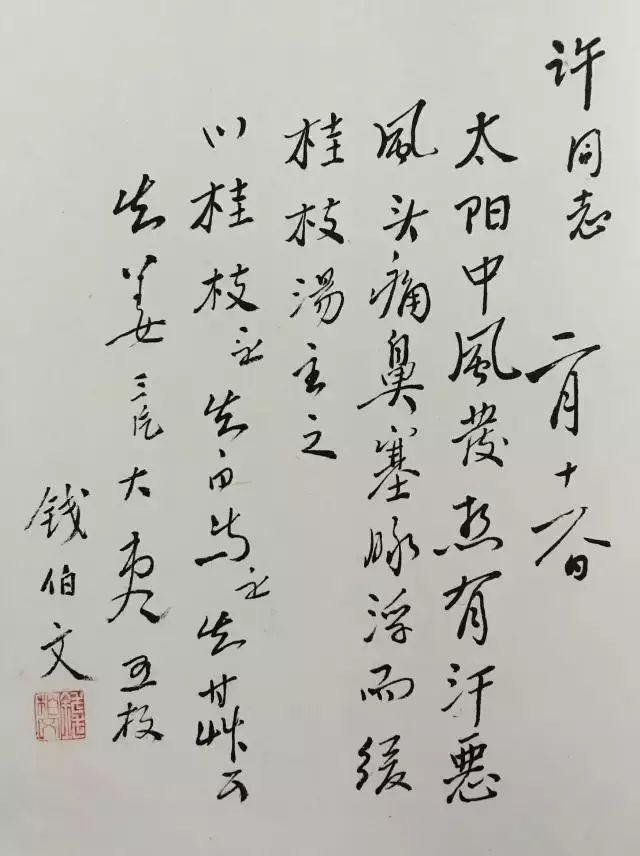 许同志 二月十日
太阳中風發热有汗惡
風头痛鼻塞脉浮而缓
桂枝湯主之
川桂枝 生白芍 生甘艸
生姜三片大枣五枚
钱伯文